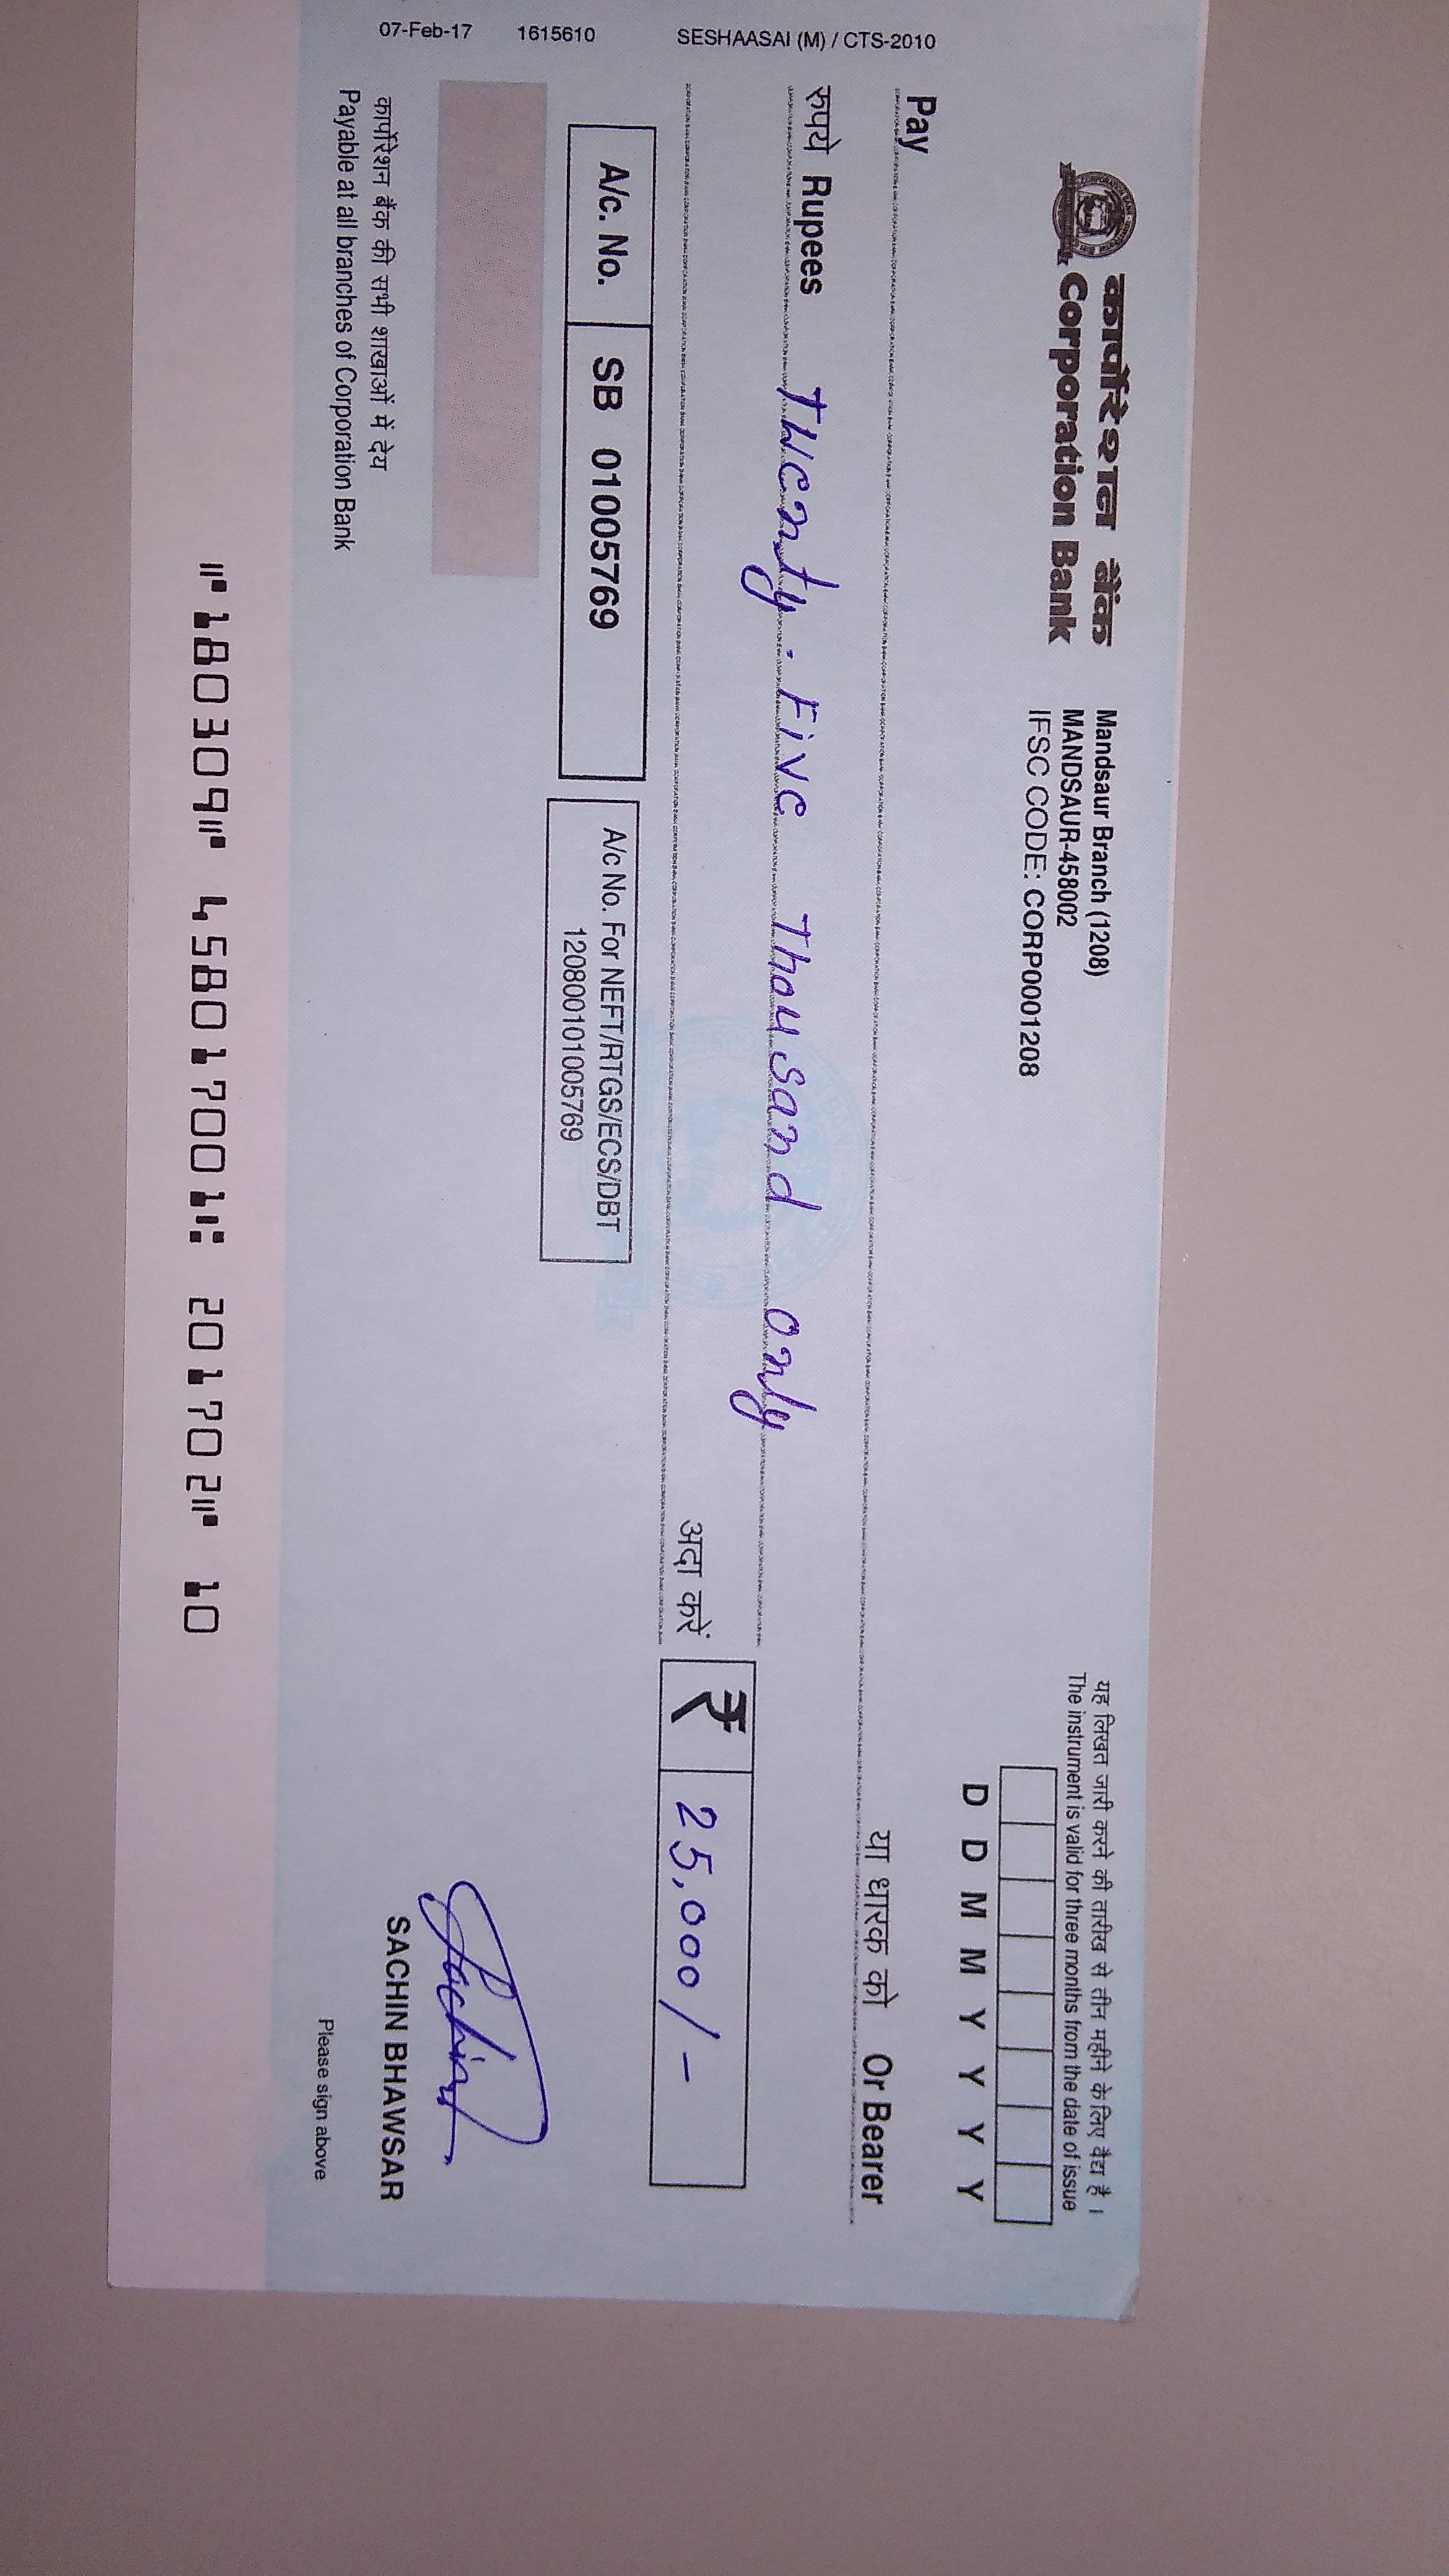 कार्पोरेशन बैंक
Corporation Bank
Mandsaur Branch (1208)
MANDSAUR-458002
IFSC CODE: CORP0001208
यह लिखत जारी करने की तारीख से तीन महीने के लिए वैद्य है ।
The instrument is valid for three months from the date of issue
D D M M Y Y Y Y
Pay
या धारक को Or Bearer
रुपये Rupees Twenty-Five Thousand only
अदा करें
₹ 25,000/-
A/c. No. SB 01005769
A/c No. For NEFT/RTGS/ECS/DBT
120800101005769
Sachin
SACHIN BHAWSAR
Please sign above
कार्पोरेशन बैंक की सभी शाखाओं में देय
Payable at all branches of Corporation Bank
07-Feb-17 1615610 SESHAASAI (M) / CTS-2010
⑈180309⑈ 458017001⑆ 201702⑈ 10